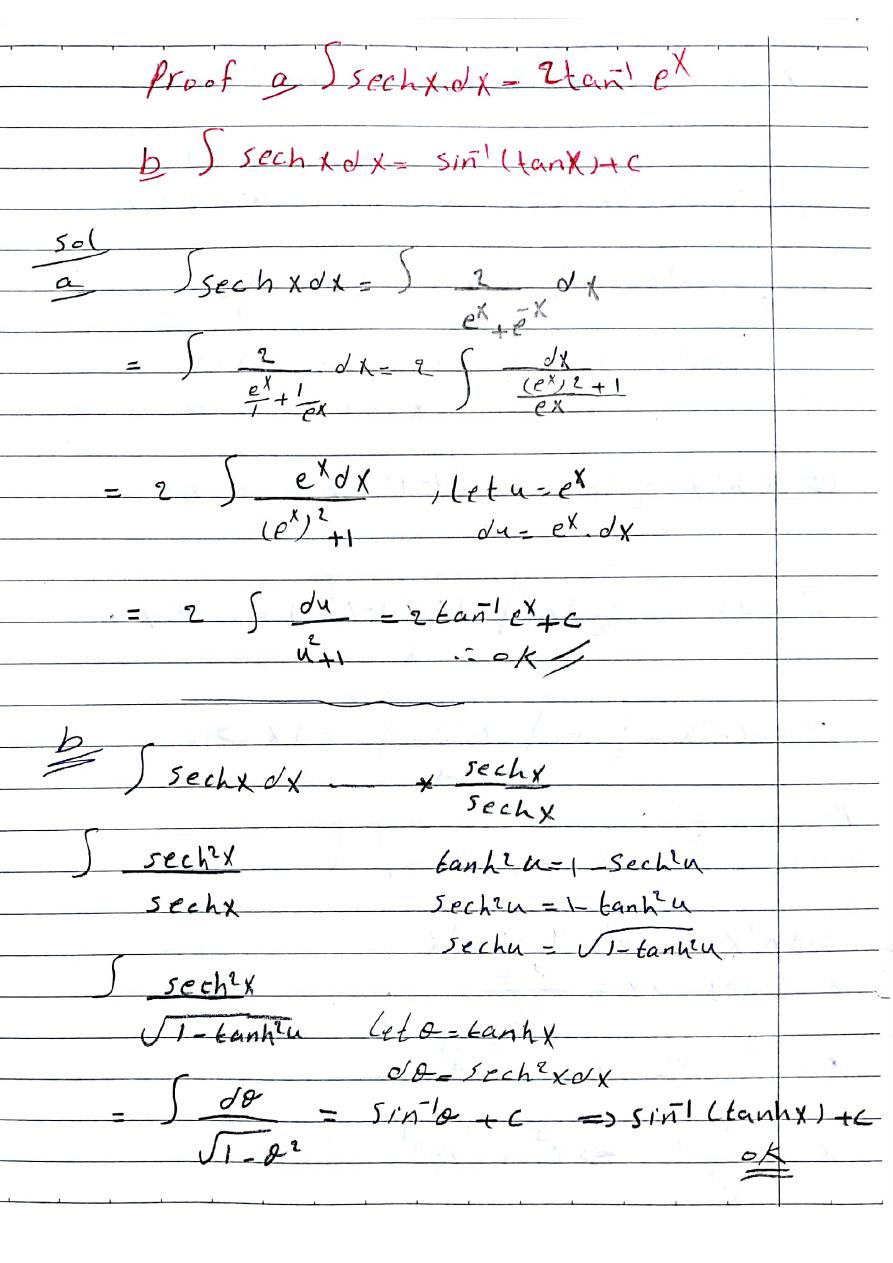 Proof a ∫ sechx.dx = 2tan⁻¹ eˣ
b ∫ sech x dx = sin⁻¹ (tanx)+c
sol
a ∫ sech x dx = ∫ 2/(eˣ + e⁻ˣ) dx
= ∫ 2/(eˣ/1 + 1/eˣ) dx = 2 ∫ dx/(((eˣ)² + 1)/eˣ)
= 2 ∫ eˣdx/((eˣ)² +1) , Let u = eˣ
du = eˣ.dx
= 2 ∫ du/(u²+1) = 2 tan⁻¹ eˣ + c
∴ ok
b
∫ sechx dx * sechx/sechx
∫ sech²x/sechx tanh²u = 1 - Sech²u
sech²u = 1 - tanh²u
sechu = √(1-tanh²u)
∫ sech²x/√(1-tanh²u) let θ = tanhx
dθ = sech²xdx
= ∫ dθ/√(1-θ²) = sin⁻¹θ + c ⇒ sin⁻¹ (tanhx) + c
ok